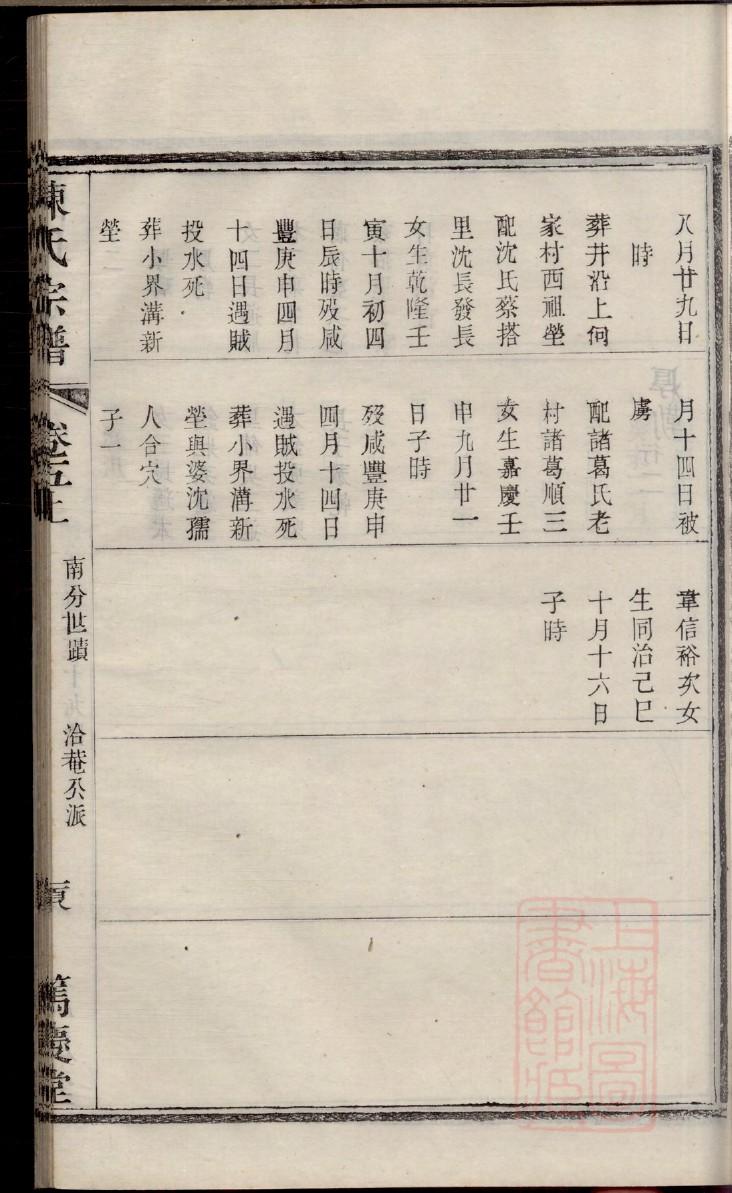 八月廿九日
時
葬井沿上何
家村西祖塋
配沈氏蔡搭
里沈長發長
女生乾隆壬
寅十月初四
日辰時歿咸
豐庚申四月
十四日遇賊
投水死
葬小界溝新
塋
月十四日被
虜
配諸葛氏老
村諸葛順三
女生嘉慶壬
申九月廿一
日子時
歿咸豐庚申
四月十四日
遇賊投水死
葬小界溝新
塋與婆沈孺
人合穴
子一
韋信裕次女
生同治己巳
十月十六日
子時
陳氏宗譜
卷五上
南分世蹟
洽菴公派
篤慶堂
上海圖
書館